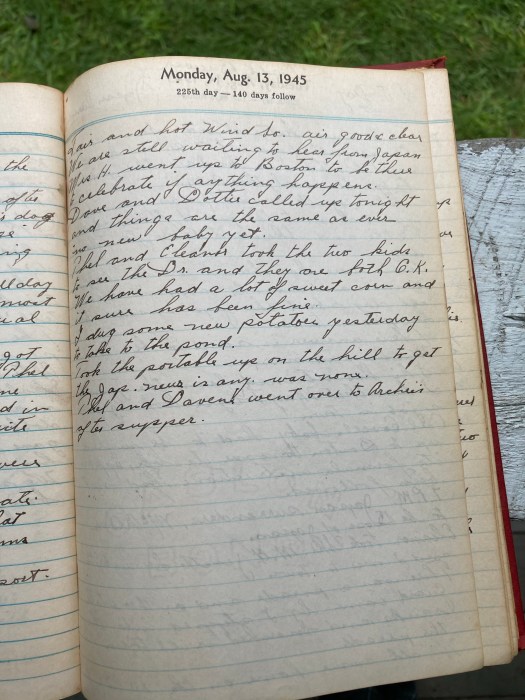 Monday, Aug. 13, 1945
225th day — 140 days follow
Fair and hot Wind So. air good & clear
We are still waiting to hear from Japan
Mrs H. went up to Boston to be there
to celebrate if anything happens.
Dave and Dottie called up tonight
and things are the same as ever
no new baby yet.
Phel and Eleanor took the two kids
to see the Dr. and they are both O.K.
We have had a lot of sweet corn and
it sure has been fine.
I dug some new potatoes yesterday
to take to the pond.
Took the portable up on the hill to get
the Jap. news is any. was none.
Phel and went over to Archie's
after supper.
the
after
day
ing
ll day
most
ial
got
Phel
me
d in
ate.
at
ms
port.